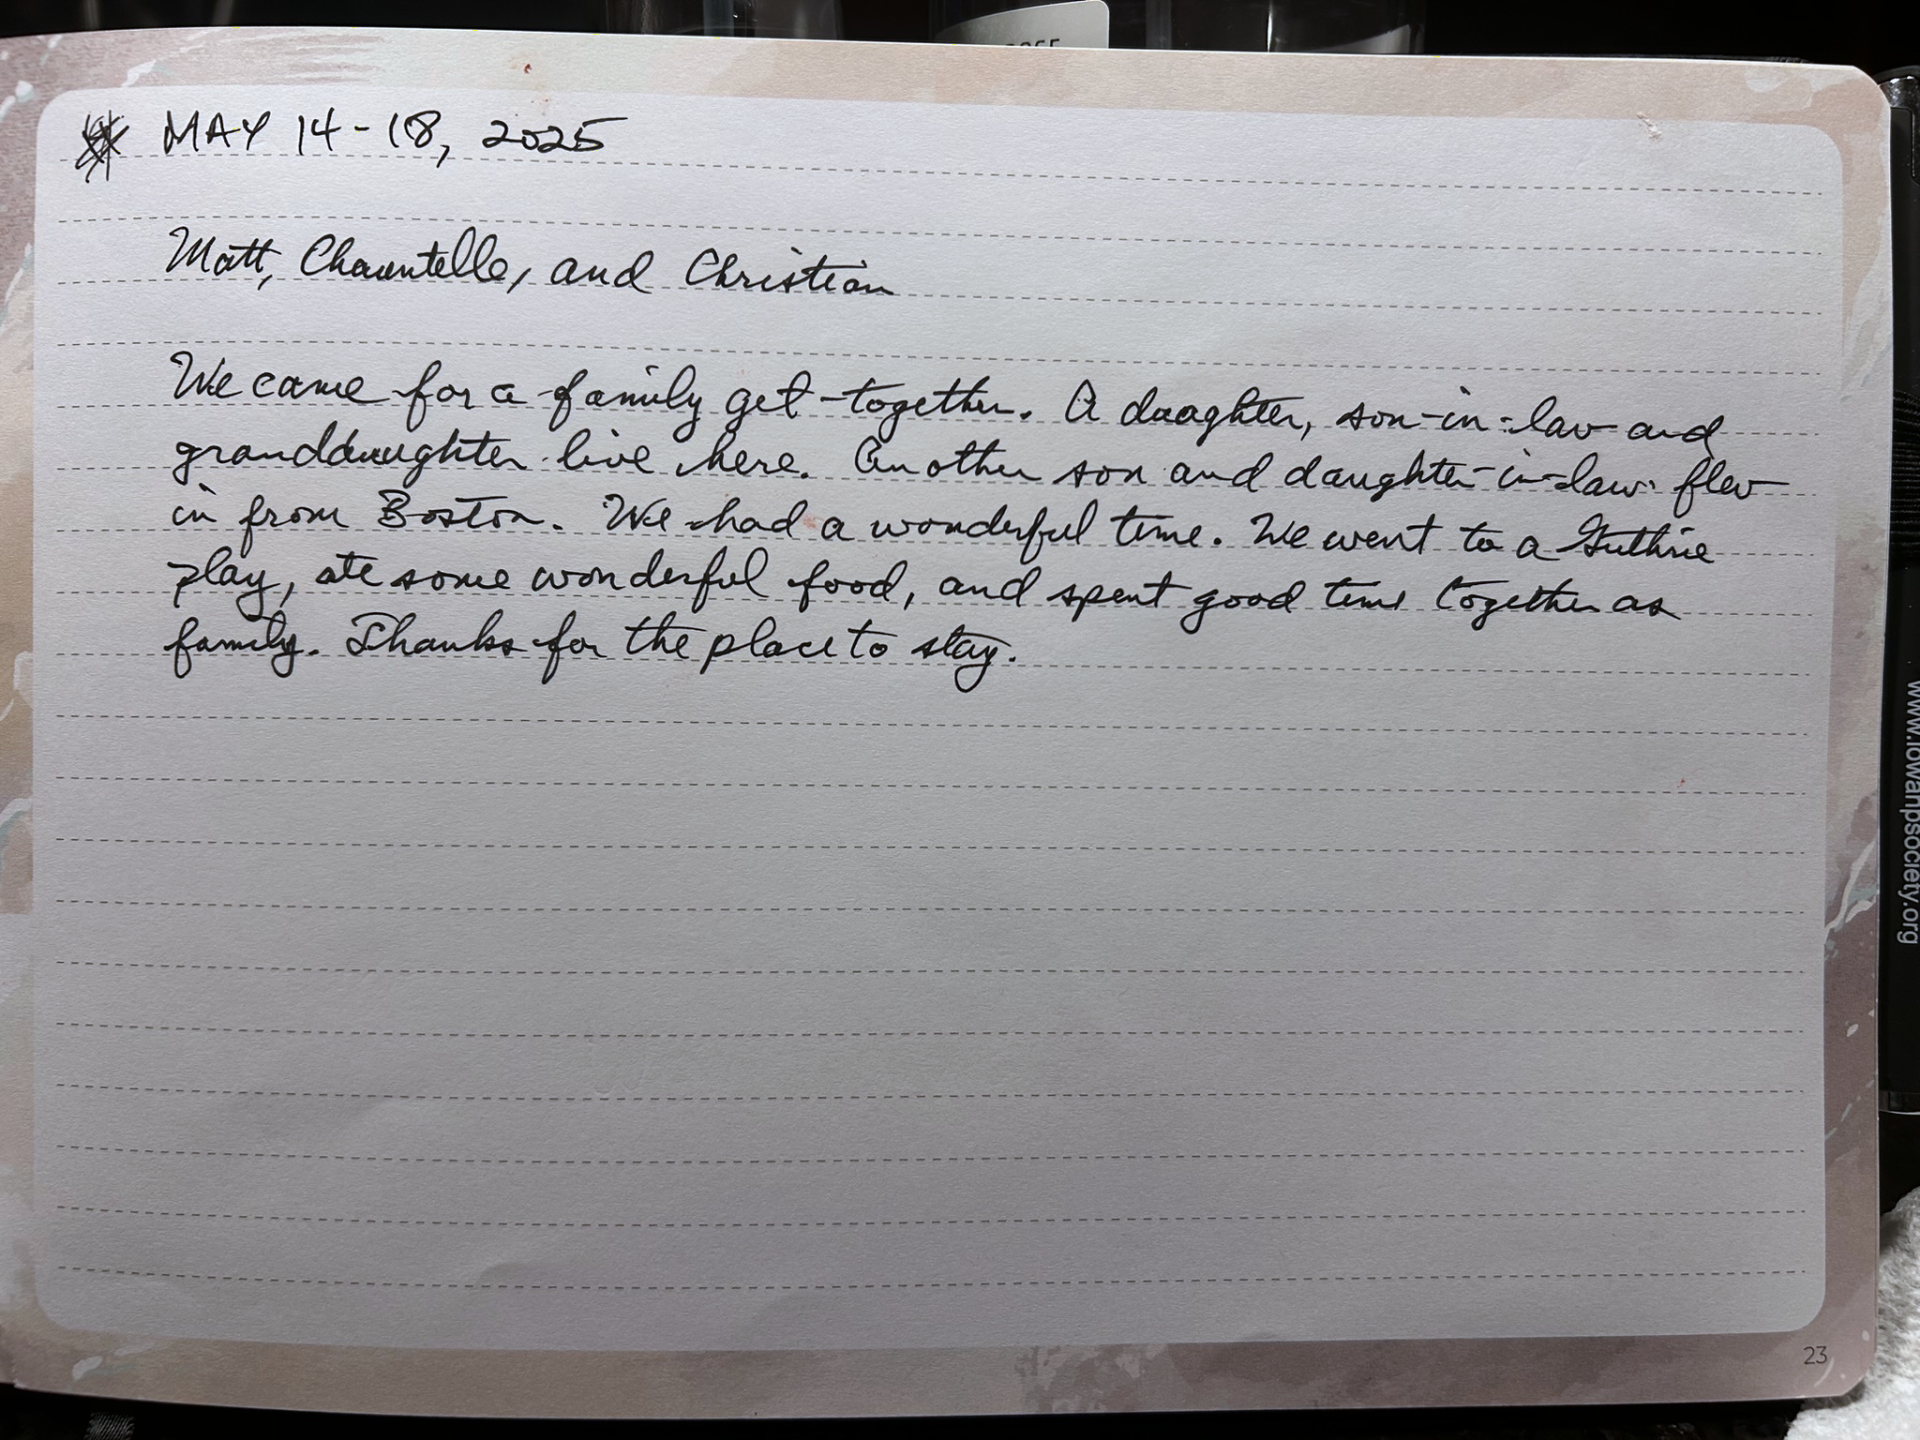 MAY 14-18, 2025
Matt, Chauntelle, and Christian
We came for a family get-together. A daughter, son-in-law and
granddaughter live here. Another son and daughter-in-law flew
in from Boston. We had a wonderful time. We went to a Guthrie
play, ate some wonderful food, and spent good time together as
family. Thanks for the place to stay.
www.iowanpsociety.org
23